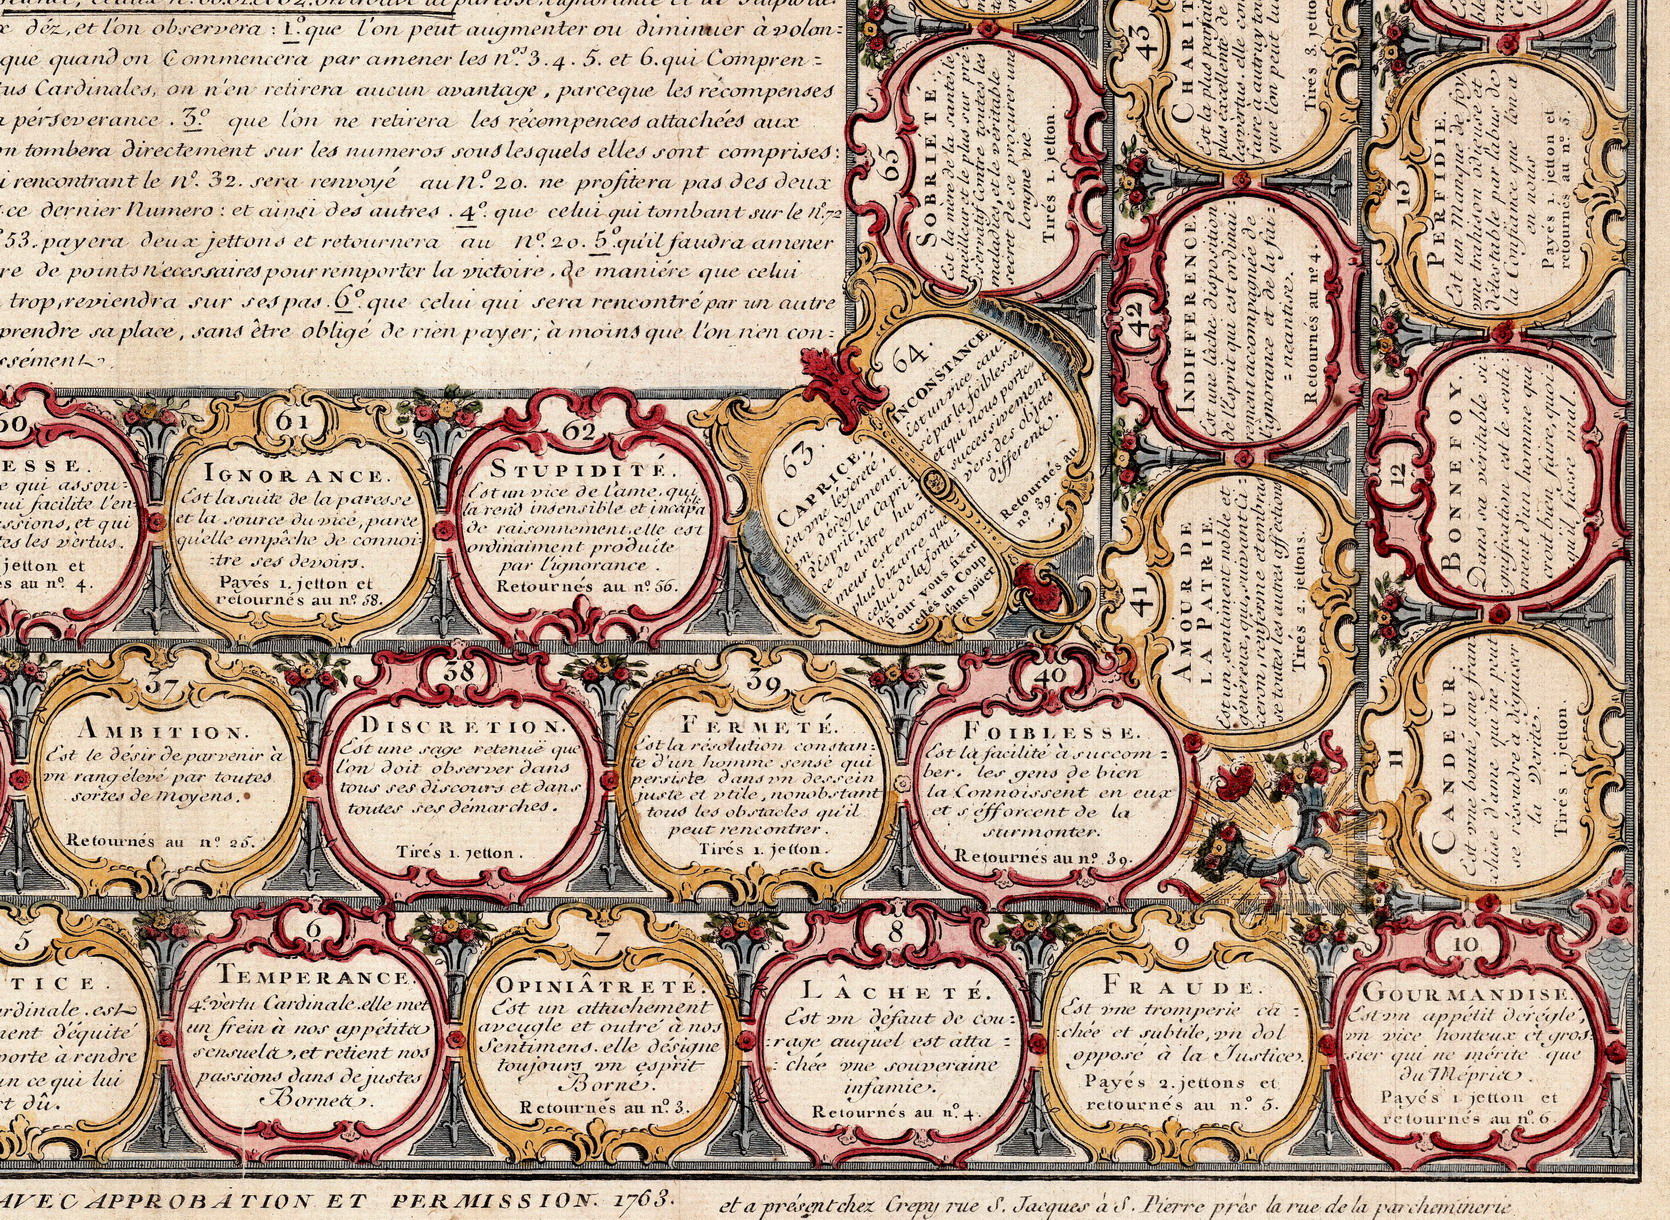 x déz, et l'on observera : 1.º que l'on peut augmenter ou diminuer à volon=
que quand on Commencera par amener les n.os 3. 4. 5. et 6. qui Compren=
tus Cardinales, on n'en retirera aucun avantage, parceque les récompenses
a pérseverance. 3.º que l'on ne retirera les récompences attachées aux
on tombera directement sur les numeros sous lesquels elles sont comprises:
i rencontrant le n.º 32. sera renvoyé au n.º 20. ne profitera pas des deux
ce dernier Numero: et ainsi des autres. 4.º que celui qui tombant sur le n.º 72
53. payera deux jettons et retournera au n.º 20. 5.º qu'il faudra amener
re de points necessaires pour remporter la victoire, de maniére que celui
trop, reviendra sur ses pas. 6.º que celui qui sera rencontré par un autre
prendre sa place, sans être obligé de rien payer; à moins que l'on n'en con=
ssément.
65
SOBRIETÉ.
Est la mere de la santé, le
meilleur et le plus sur pré
servatif contre toutes les
maladies, et le véritable
secret de se procurer une
longue vie.
Tirés 1. jetton.
43
CHARIT
Est la plus parfai
plus excellente de
les vertus. elle con
faire a autruy tou
que l'on peut lu
Tirés 3. jetto
13
PERFIDIE.
Est un Manque de foy,
une trahison odieuse et
détestable par l'abus de
la Confiance que l'on a
en nous
Payés 1. jetton et
retournés au n.º 5.
42
INDIFFERENCE.
Est une lâche disposition
de l'esprit qui est ordinai=
rement accompagnée de
l'ignorance et de la fai=
=neantise.
Retournés au n.º 4.
12
BONNEFOY.
Dans sa veritable si
gnification est le senti=
ment d'un homme qui
croit bien faire, quoi=
qu'il fasse mal.
64.
INCONSTANCE.
Est un vice cau=
sé par la foiblesse,
et qui nous porte
successivement
vers des objets
differens.
Retournés au
n.º 39.
63.
CAPRICE.
Est une légéreté,
un déréglement
d'Esprit: le Capri=
ce de nôtre hu=
meur est encore
plus bizarre que
celui de la fortu=
ne.
Pour vous fixer
restés un Coup
sans jouer
60
ESSE.
e qui assou=
qui facilite l'en
ssions, et qui
tes les vertus.
jetton et
és au n.º 4.
61
IGNORANCE.
Est la suite de la paresse
et la source du vice, parce
qu'elle empêche de connoi=
=tre ses devoirs.
Payés 1. jetton et
retournés au n.º 58.
62
STUPIDITÉ.
Est un vice de l'ame, qui
la rend insensible et incapa ble
de raisonnement. elle est
ordinaiment produite
par l'ignorance.
Retournés au n.º 56.
41
AMOUR DE
LA PATRIE.
Est un sentiment noble et
généreux, qui, suivant Ci=
ceron, renferme et embras
se toutes les autres affections
Tirés 2. jettons.
11
CANDEUR.
Est une bonté, une fran
chise d'ame qui ne peut
se résoudre à déguiser
la Verité.
Tirés 1. jetton.
37
AMBITION.
Est le désir de parvenir à
un rang élevé par toutes
sortes de Moyens.
Retournés au n.º 25.
38
DISCRETION.
Est une sage retenuë que
l'on doit observer dans
tous ses discours et dans
toutes ses démarches.
Tirés 1. jetton.
39
FERMETÉ.
Est la résolution constan=
te d'un homme sensé qui
persiste dans un dessein
juste et utile, nonobstant
tous les obstacles qu'il
peut rencontrer.
Tirés 1. jetton.
40
FOIBLESSE.
Est la facilité à succom=
ber. les gens de bien
la Connoissent en eux
et s'éfforcent de la
surmonter.
Retournés au n.º 39.
5
TICE.
ardinale. est
ment d'équité
porte à rendre
un ce qui lui
rt dû.
6
TEMPERANCE.
4.e vertu Cardinale. elle met
un frein à nos appétits
sensuels, et retient nos
passions dans de justes
Bornes.
7
OPINIÂTRETÉ.
Est un attachement
aveugle et outré à nos
Sentimens. elle désigne
toujours un esprit
Borné.
Retournés au n.º 3.
8
LÂCHETÉ.
Est un défaut de cou=
rage auquel est atta=
chée une souveraine
infamie.
Retournés au n.º 4.
9
FRAUDE.
Est une tromperie ca=
chée et subtile, un dol
opposé à la Justice.
Payés 2. jettons et
retournés au n.º 5.
10
GOURMANDISE.
Est un appétit déréglé,
un vice honteux et gros=
sier qui ne mérite que
du Mépris.
Payés 1 jetton et
retournés au n.º 6.
AVEC APPROBATION ET PERMISSION. 1763.
et a présent chez Crepy rue S. Jacques à S. Pierre près la rue de la parcheminerie